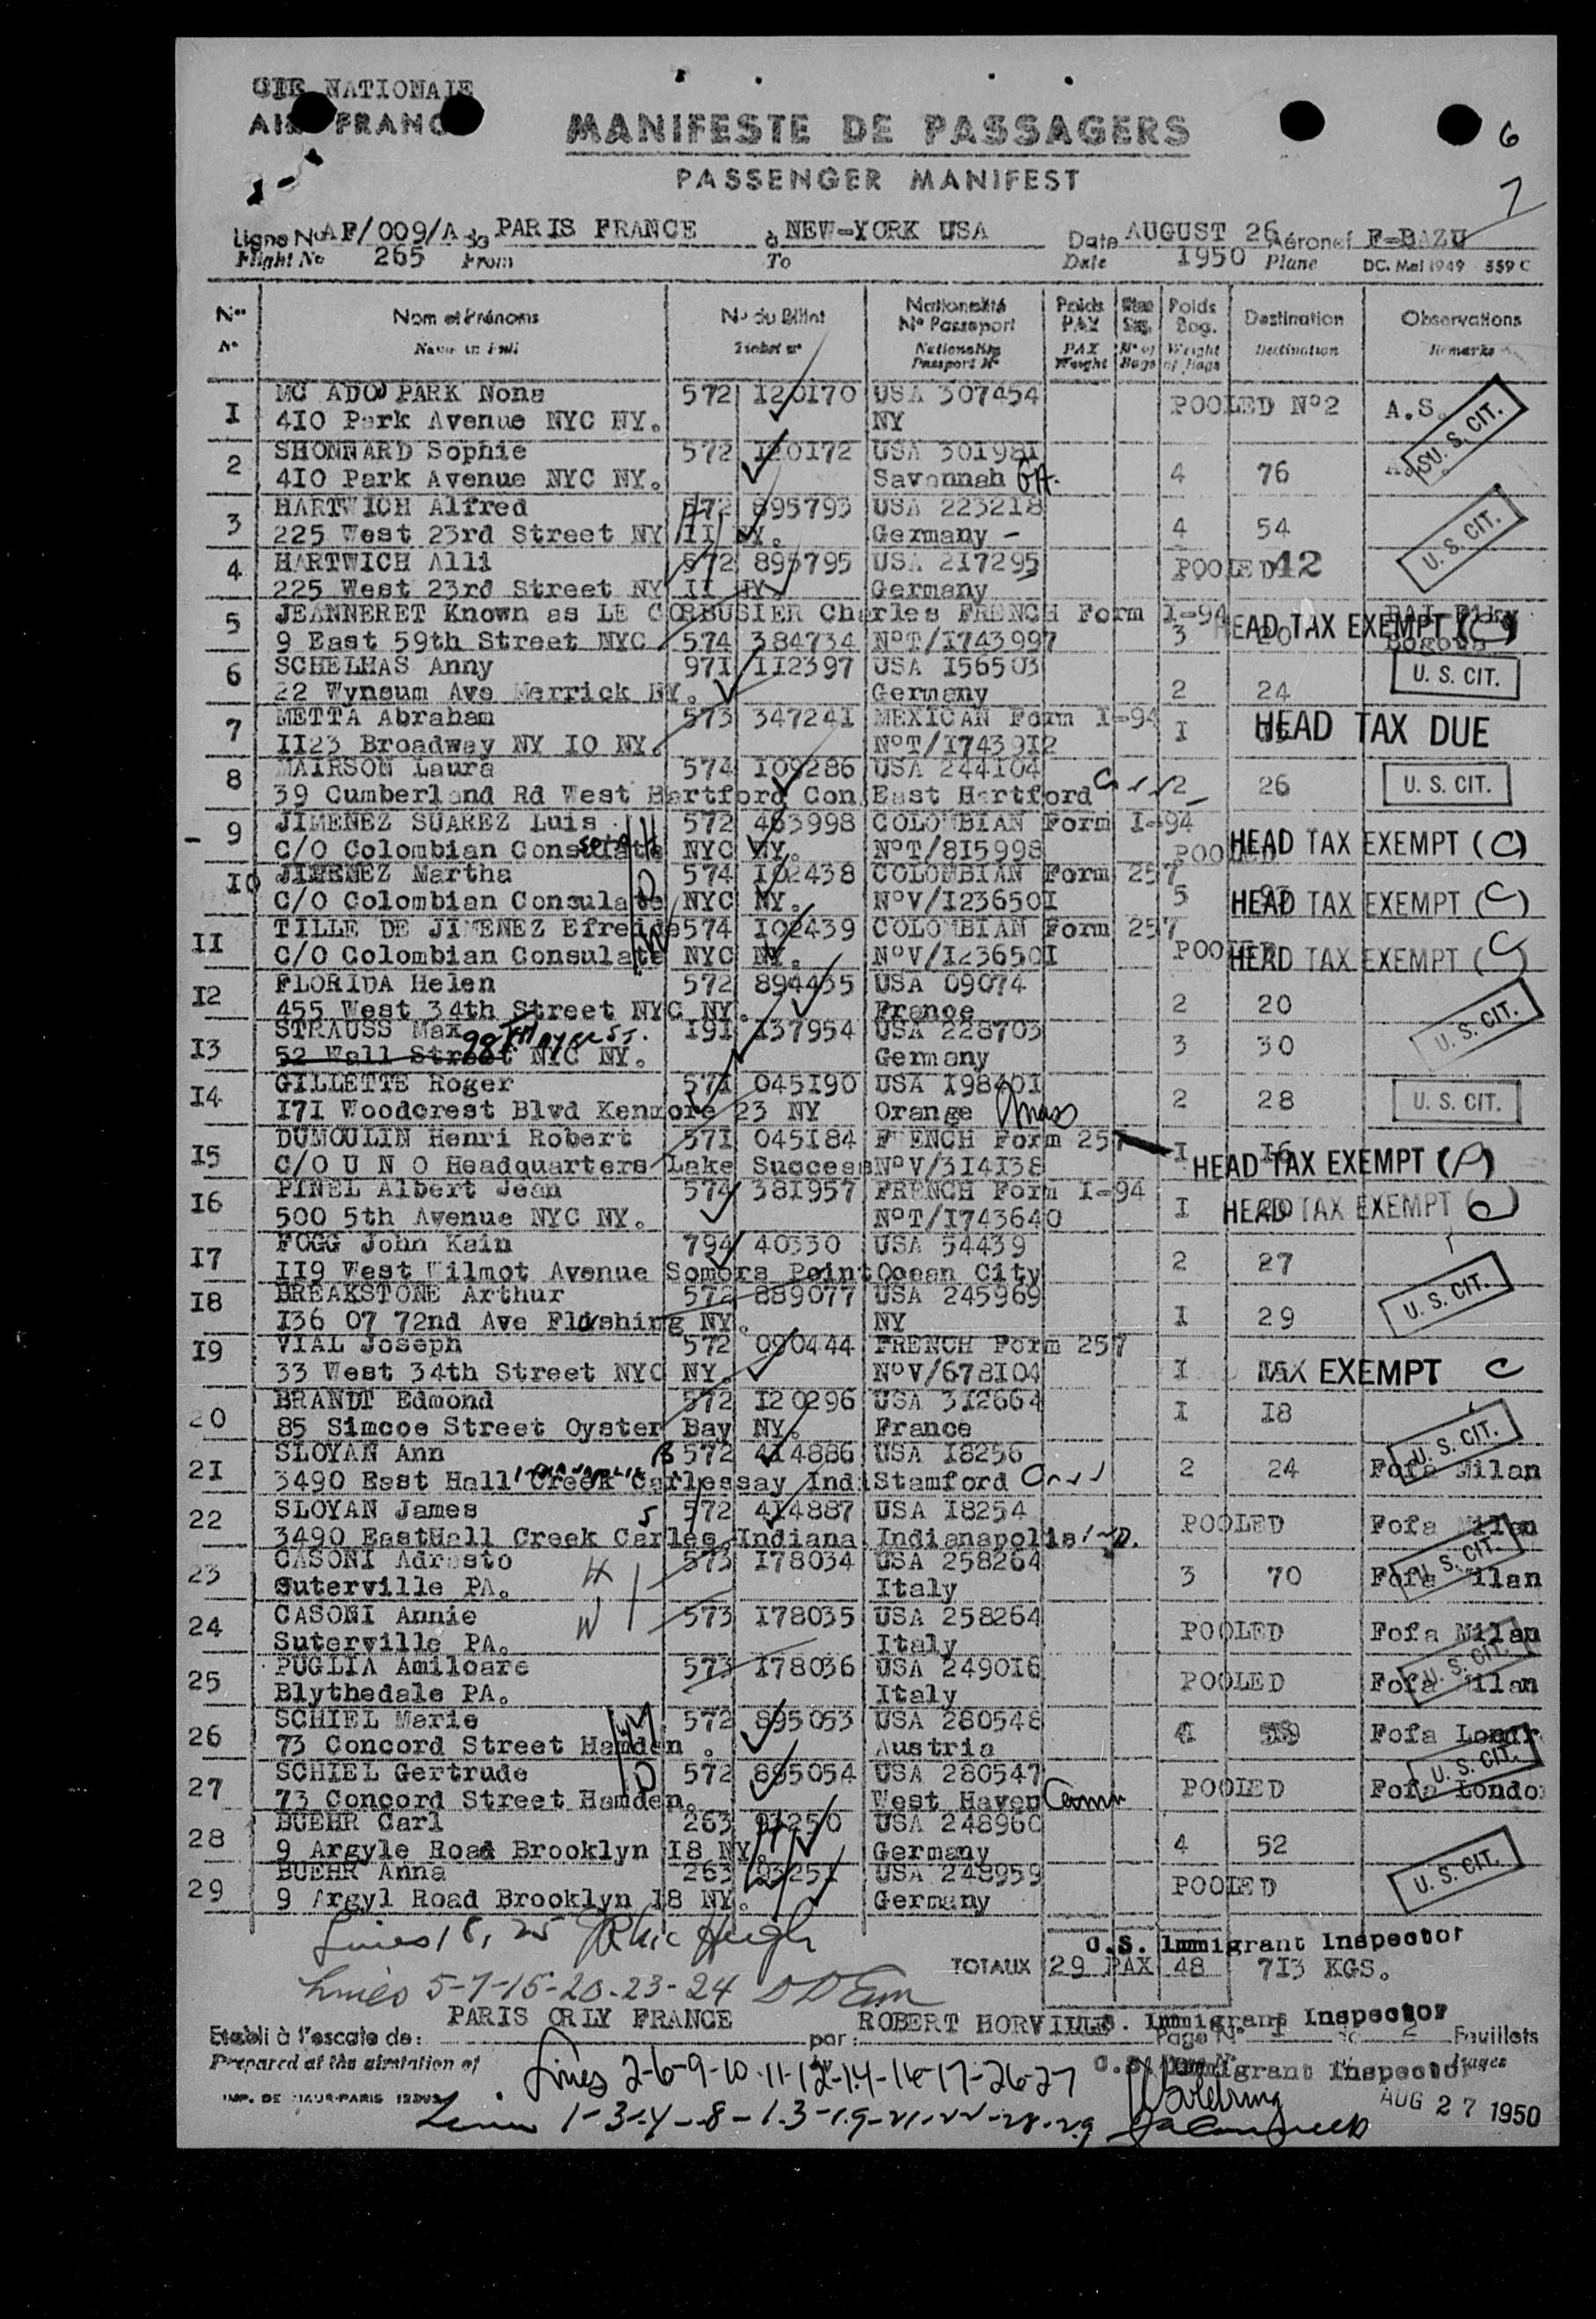 CIE NATIONALE
AIR FRANCE
MANIFESTE DE PASSAGERS
PASSENGER MANIFEST
6
7
Ligne No AF/009/A de PARIS FRANCE à NEW-YORK USA Date AUGUST 26 Aéronef F-BAZU
Flight No 265 From To Date 1950 Plane DC. Mai 1949 559 C
Nos Nom et Prénoms No du Billet Nationalité No Passeport Poids PAX Nbre Bag. Poids Bag. Destination Observations
No Name in Full Ticket no Nationality Passport No PAX Weight No of Bags Weight of Bags Destination Remarks
I MC ADOW PARK Nona 572 120170 USA 307454 POOLED No2 A.S.
410 Park Avenue NYC NY. NY
2 SHONNARD Sophie 572 120172 USA 301981 4 76 U.S. CIT.
410 Park Avenue NYC NY. Savannah GA.
3 HARTWICH Alfred 572 895793 USA 223218 4 54 U.S. CIT.
225 West 23rd Street NY II NY. Germany -
4 HARTWICH Alli 572 895795 USA 217295 POOLED 12
225 West 23rd Street NY II NY. Germany
5 JEANNERET Known as LE CORBUSIER Charles FRENCH Form I-94 HEAD TAX EXEMPT (C)
9 East 59th Street NYC 574 384734 NoT/I743997 3 20 Bogota
6 SCHELHAS Anny 971 112397 USA I56503 U. S. CIT.
22 Wynsum Ave Merrick NY. Germany 2 24
7 METTA Abraham 573 347241 MEXICAN Form I-94 I HEAD TAX DUE
II23 Broadway NY IO NY. NoT/I743912
8 MAIRSON Laura 574 109286 USA 244104 2 26 U. S. CIT.
39 Cumberland Rd West Hartford Con East Hartford Conn
- 9 JIMENEZ SUAREZ Luis 572 463998 COLOMBIAN Form I-94 POOLED HEAD TAX EXEMPT (C)
C/O Colombian Consulate NYC NY. NoT/8I5998
IO JIMENEZ Martha 574 I02438 COLOMBIAN Form 257 5 HEAD TAX EXEMPT (C)
C/O Colombian Consulate NYC NY. NoV/I23650I
II TILLE DE JIMENEZ Efreude 574 I02439 COLOMBIAN Form 257 POOLED HEAD TAX EXEMPT (C)
C/O Colombian Consulate NYC NY. NoV/I23650I
I2 FLORIDA Helen 572 894435 USA 09074 2 20
455 West 34th Street NYC NY. France U. S. CIT.
I3 STRAUSS Max 98 Thayer St. I9I I37954 USA 228703 3 30
52 Wall Street NYC NY. Germany
I4 GILLETTE Roger 57I 045I90 USA I9840I 2 28 U. S. CIT.
I7I Woodcrest Blvd Kenmore 23 NY Orange Mass
I5 DUMOULIN Henri Robert 57I 045I84 FRENCH Form 257 I I6 HEAD TAX EXEMPT (A)
C/O U N O Headquarters Lake Success NoV/3I4I38
I6 PINEL Albert Jean 574 38I957 FRENCH Form I-94 I HEAD TAX EXEMPT (C)
500 5th Avenue NYC NY. NoT/I743640
I7 FOGG John Kain 794 40330 USA 54439 2 27
II9 West Wilmot Avenue Somers Point Ocean City
I8 BREAKSTONE Arthur 572 889077 USA 245969 I 29 U. S. CIT.
I36 07 72nd Ave Flushing NY. NY
I9 VIAL Joseph 572 090444 FRENCH Form 257 I TAX EXEMPT C
33 West 34th Street NYC NY. NoV/678I04
20 BRANDT Edmond 572 I20296 USA 3I2664 I I8
85 Simcoe Street Oyster Bay NY. France
2I SLOYAN Ann B 572 4I4886 USA I8256 2 24 Fofa Milan U. S. CIT.
3490 East Hall Creek Carlessay Indi Stamford Conn
22 SLOYAN James S 572 4I4887 USA I8254 POOLED Fofa Milan
3490 EastHall Creek Carles Indiana Indianapolis IND.
23 CASONI Adrasto H 573 I78034 USA 258264 3 70 Fofa Milan U. S. CIT.
Suterville PA. Italy
24 CASONI Annie W 573 I78035 USA 258264 POOLED Fofa Milan
Suterville PA. Italy
25 PUGLIA Amilcare 573 I78036 USA 2490I6 POOLED Fofa Milan U. S. CIT.
Blythedale PA. Italy
26 SCHIEL Marie M 572 895053 USA 280548 4 Fofa Londr
73 Concord Street Hamden . Austria
27 SCHIEL Gertrude D 572 895054 USA 280547 POOLED Fofa Londo U. S. CIT.
73 Concord Street Hamden. West Haven Conn
28 BUEHR Carl 263 93250 USA 248960 4 52
9 Argyle Road Brooklyn I8 NY. H Germany
29 BUEHR Anna 263 9325I USA 248959 POOLED U. S. CIT.
9 Argyl Road Brooklyn I8 NY. W Germany
Lines 18, 25
U.S. Immigrant Inspector
TOTAUX 29 PAX 48 7I3 KGS.
Lines 5-7-15-20-23-24
PARIS ORLY FRANCE ROBERT HORVILLE U.S. Immigrant Inspector
Etabli à l'escale de: par: Page No I de 2 Feuillets
Prepared at the airstation of by Pages
U.S. Immigrant Inspector
Lines 2-6-9-10-11-12-14-16-17-26-27
IMP. DE MAUR-PARIS
AUG 27 1950
Lines 1-3-4-8-13-19-21-22-28-29